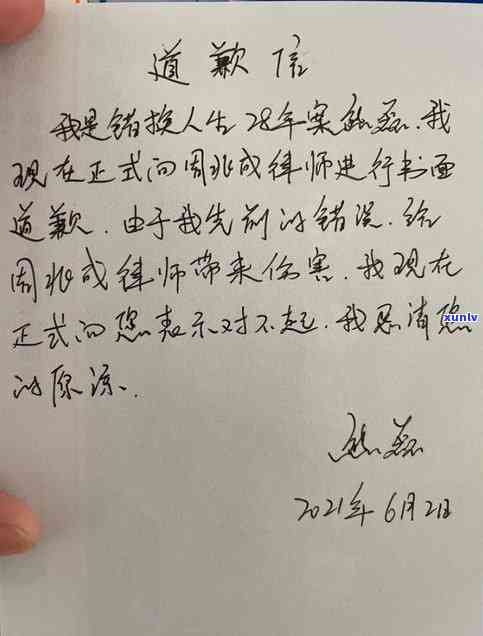 道歉信
我是错换人生28年案熊磊.我
现在正式向周兆成律师进行书面
道歉.由于我先前的错误.给
周兆成律师带来伤害.我现在
正式向您表示对不起.我恳请您
的原谅.
熊磊
2021年6月2日
xunlv